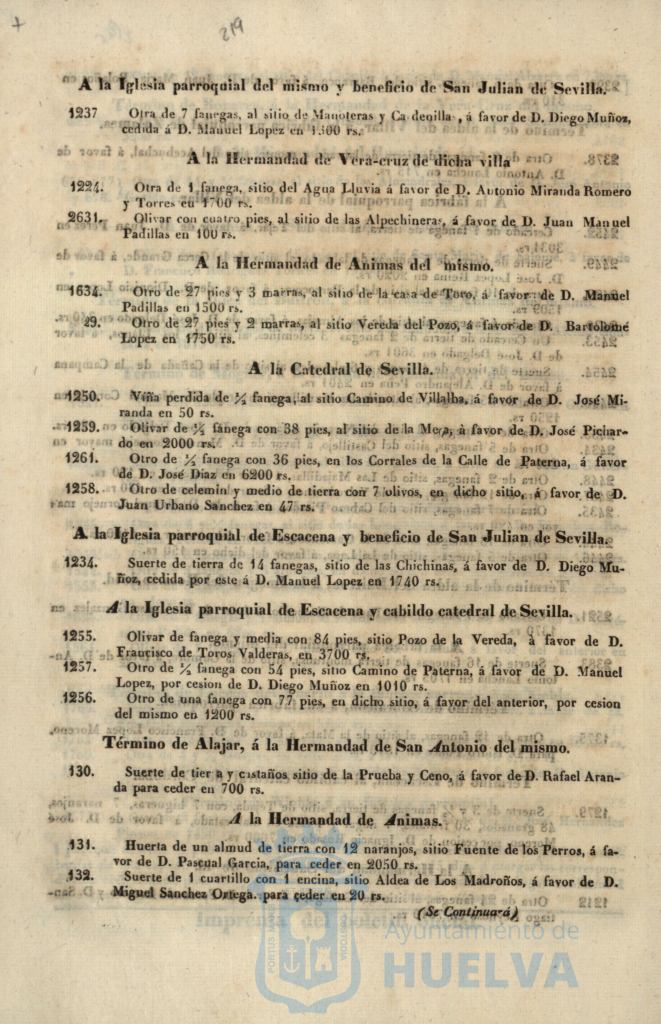 219
A la Iglesia parroquial del mismo y beneficio de San Julian de Sevilla.
1237 Otra de 7 fanegas, al sitio de Manoteras y Cadenillas, á favor de D. Diego Muñoz,
cedida á D. Manuel Lopez en 1300 rs.
A la Hermandad de Vera-cruz de dicha villa
1224. Otra de 1 fanega, sitio del Agua Lluvia á favor de D. Antonio Miranda Romero
y Torres en 1700 rs.
2631. Olivar con cuatro pies, al sitio de las Alpechineras, á favor de D. Juan Manuel
Padillas en 100 rs.
A la Hermandad de Animas del mismo.
1634. Otro de 27 pies y 3 marras, al sitio de la casa de Toro, á favor de D. Manuel
Padillas en 1500 rs.
29. Otro de 27 pies y 2 marras, al sitio Vereda del Pozo, á favor de D. Bartolomé
Lopez en 1750 rs.
A la Catedral de Sevilla.
1250. Viña perdida de ½ fanega, al sitio Camino de Villalba, á favor de D. José Mi-
randa en 50 rs.
1259. Olivar de ½ fanega con 38 pies, al sitio de la Mesa, á favor de D. José Pichar-
do en 2000 rs.
1261. Otro de ½ fanega con 36 pies, en los Corrales de la Calle de Paterna, á favor
de D. José Diaz en 6200 rs.
1258. Otro de celemin y medio de tierra con 7 olivos, en dicho sitio, á favor de D.
Juan Urbano Sanchez en 47 rs.
A la Iglesia parroquial de Escacena y beneficio de San Julian de Sevilla.
1234. Suerte de tierra de 14 fanegas, sitio de las Chichinas, á favor de D. Diego Mu-
ñoz, cedida por este á D. Manuel Lopez en 1740 rs.
A la Iglesia parroquial de Escacena y cabildo catedral de Sevilla.
1255. Olivar de fanega y media con 84 pies, sitio Pozo de la Vereda, á favor de D.
Francisco de Toros Valderas, en 3700 rs.
1257. Otro de ½ fanega con 54 pies, sitio Camino de Paterna, á favor de D. Manuel
Lopez, por cesion de D. Diego Muñoz en 1010 rs.
1256. Otro de una fanega con 77 pies, en dicho sitio, á favor del anterior, por cesion
del mismo en 1200 rs.
Término de Alajar, á la Hermandad de San Antonio del mismo.
130. Suerte de tier a y castaños sitio de la Prueba y Ceno, á favor de D. Rafael Aran-
da para ceder en 700 rs.
A la Hermandad de Animas.
131. Huerta de un almud de tierra con 12 naranjos, sitio Fuente de los Perros, á fa-
vor de D. Pascual Garcia, para ceder en 2050 rs.
132. Suerte de 1 cuartillo con 1 encina, sitio Aldea de Los Madroños, á favor de D.
Miguel Sanchez Ortega. para ceder en 20 rs.
(Se Continuará)
Ayuntamiento de
HUELVA